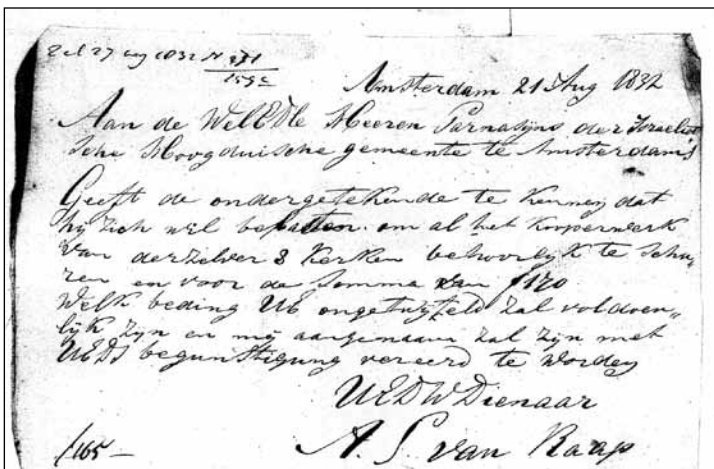 Rel 27 aug 1832 N 931
1592
Amsterdam 21 Aug 1832
Aan de WelEDle Heeren Parnasijns der Israeliet
ische Hoogduische gemeente te Amsterdam
Geeft de ondergetekende te kennen dat
hij zich wil belasten om al het Kooperwerk
van derzelver 3 Kerken behoorlyk te schu„
ren en voor de Somma van f 170
Welk beding UE ongetwijfeld zal voldoen„
lijk zijn en mij aangenaam zal zijn met
UEDs begunstiging vereerd te worden
UEDWDienaar
A. S. van Raap
f165 —